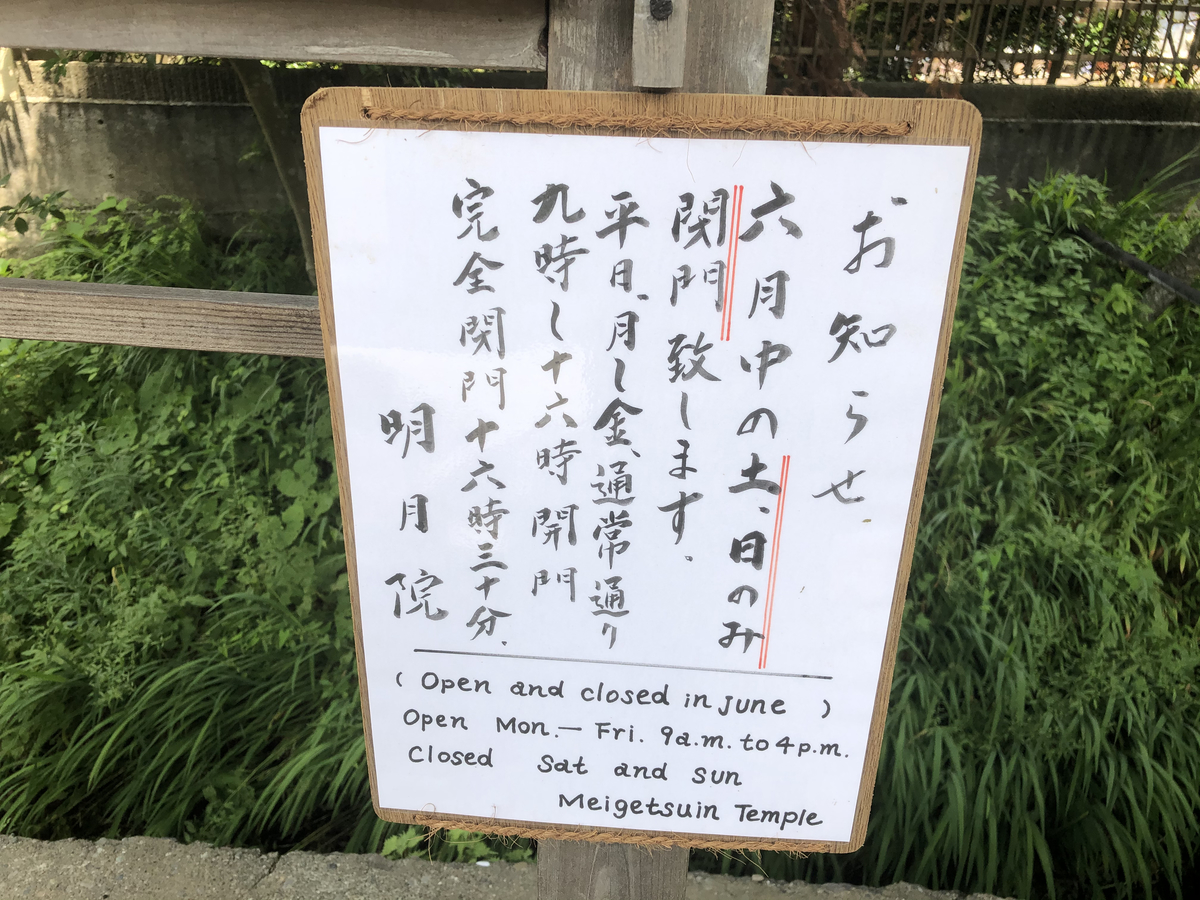 お知らせ
六月中の土、日のみ
閉門致します.
平日、月〜金、通常通り
九時〜十六時開門
完全閉門十六時三十分.
明月院
( Open and closed in june )
Open Mon.— Fri. 9a.m. to 4p.m.
Closed Sat and sun
Meigetsuin Temple